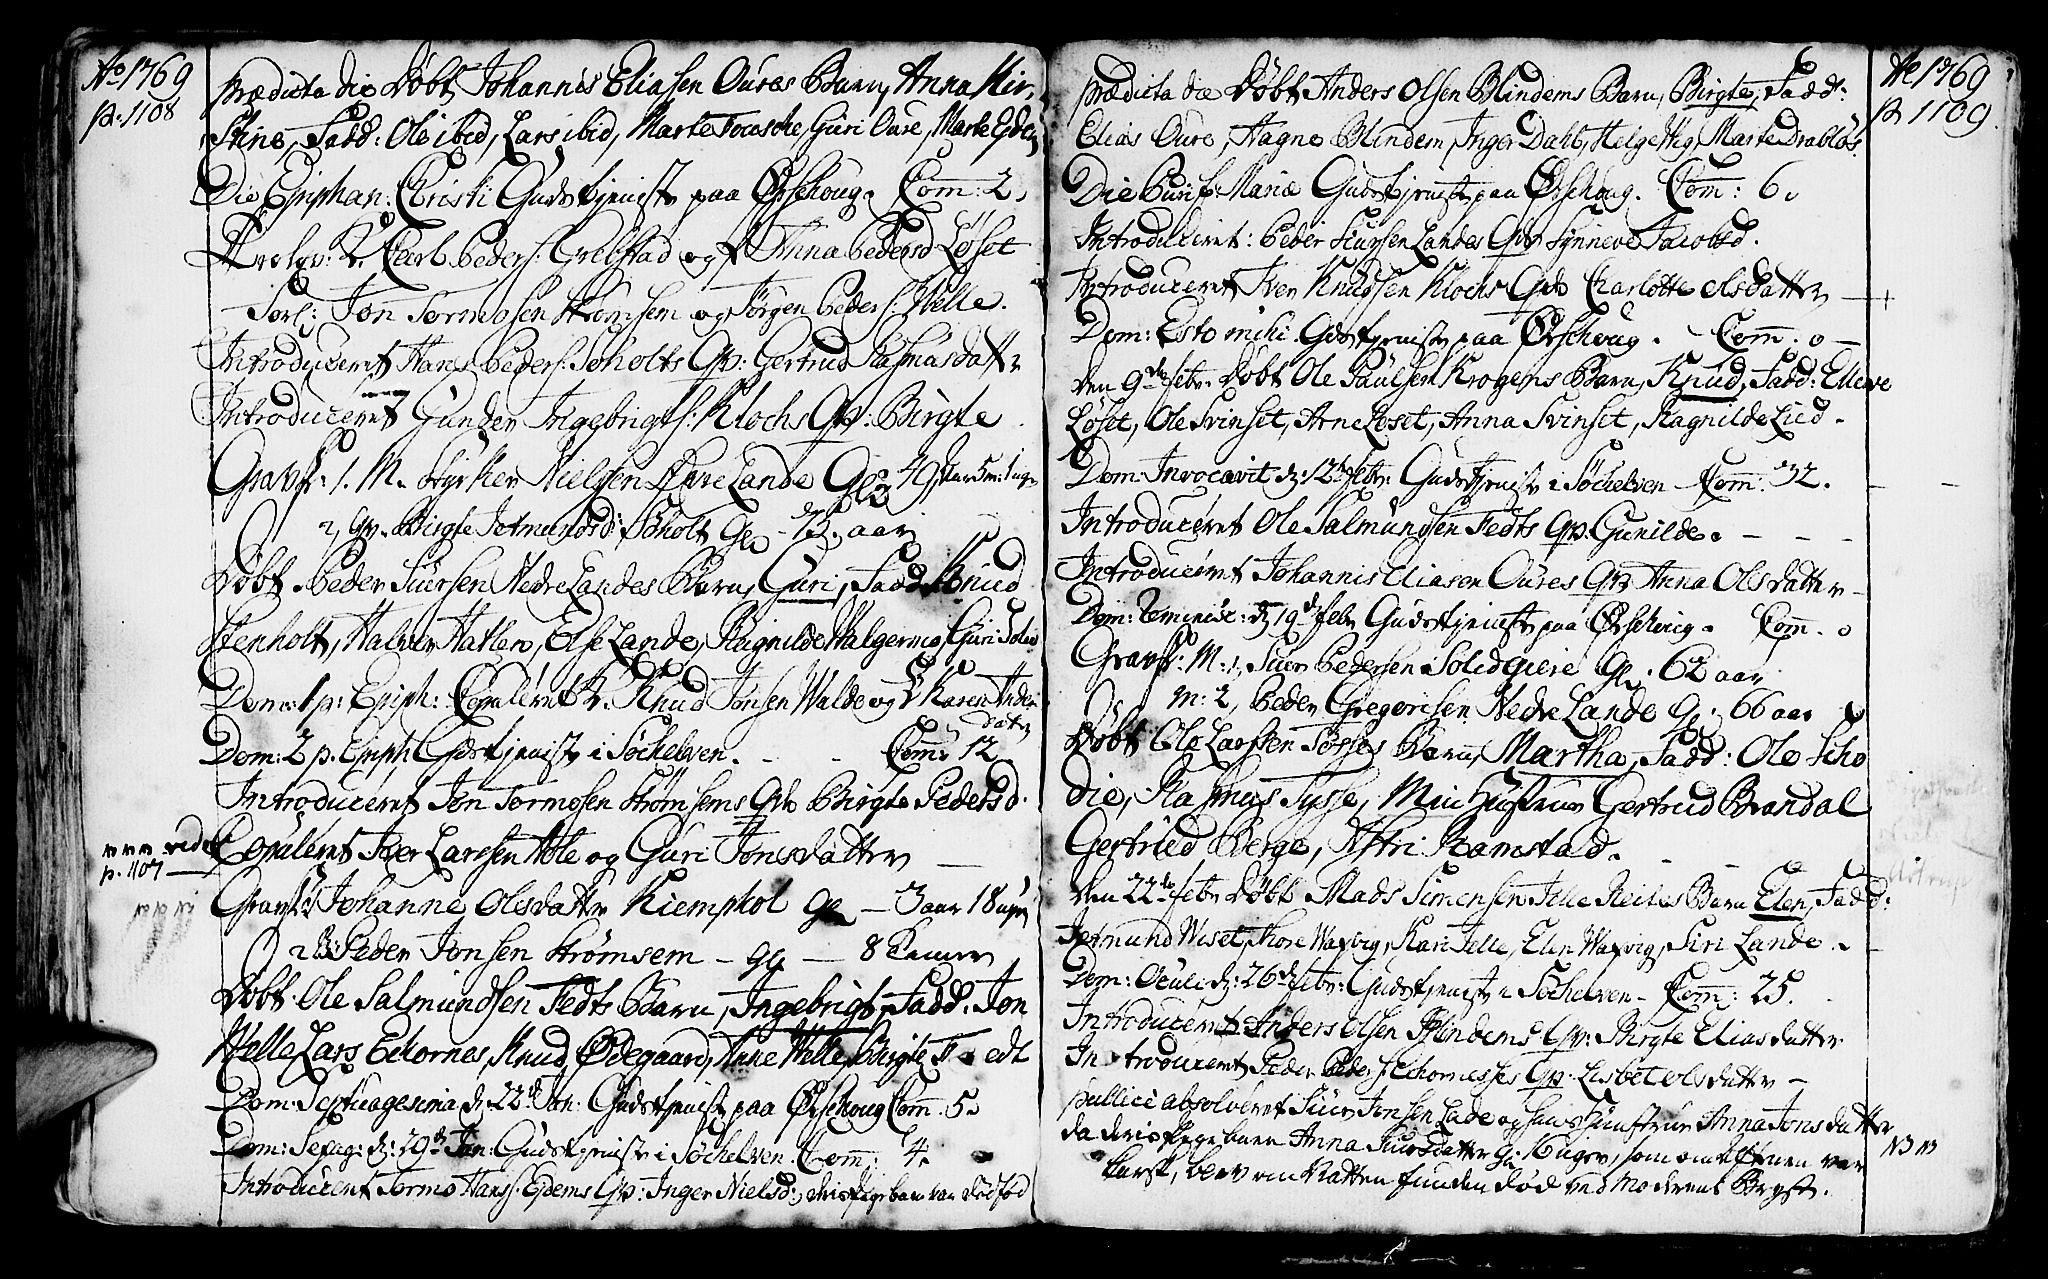 Ao 1769
p. 1108
prædicta die Døbt Johannis Eliasen Oures Barn, Anna Kir-
stine, Fadd: Ole ibid, Lars ibid, Marte Guri Oure, Marte Eidem
Die Epiphan: Christi Gudstjeniste paa Ørschoug. Com: 2.
Trolov: K. Carl Peders: Grebstad og P. Anna Pedersd Løset
Forl: Jon Tormosen Strømsem og Jørgen Peders: Welle.
Introduceret Hans Peders: Søholts Qv: Gertrud Rasmusdatter
Introduceret Gunder Ingebrigts: Klochs Qv: Birgte
Gravf: 1. M. Styrker Nielsen Øvre Lande Gl. 49 Aar 5 m: 1 uge
2, Qv. Birgte Jetmundsd: Søholt Gl. 73. aar
Døbt Peder Siursen Nedre Landes Barn, Guri, Fadd Knud
Stenholt, Halver Hatlen, Else Lande, Ragnilde Walgermo, Guri
Dom: 1 p: Epiph: Copuleret K. Knud Jonsen Walde og P Karen Anders
datter
Dom: 2 p. Epiph Gudstjeniste i Søchelven. - - Com: 12
Introduceret Jon Tormosen Strømsems Qv Birgte Pedersd.
nnn vide
p. 1107
Copuleret Iver Larssen Hole og Guri Jonsdatter
Gravf: 1 Johanne Olsdatter Kiemphol gl - 3 aar 18 uger
2 B: Peder Jonsen Strømsem - gl - 8
Døbt Ole Salmundsen Fedts Barn, Ingebrigt, Fadd: Jon
Welle Lars Echornes, Knud Ødegaard, Anne Welle, Birgte Fedt
Dom: Septuagesima d. 22de Jan: Gudstjeniste paa Ørschoug Com: 5.
Dom: Sexag: d: 29de Jan: Gudstjeniste i Søchelven. Com: 4.
Introduceret Tormo Hans: Eidems Qv: Inger Nielsd: deris barn var dødfød
Ao 1769
p 1109
prædicta die Døbt Anders Olsen Blindems Barn, Birgte, Fadd:
Elias Oure, Hagne Blindem, Inger Dahl, Helge Marte Drabløs.
Die Purif: Mariæ Gudstjeniste paa Ørschoug. Com: 6.
Introduceret: Peder Siursen Landes Qv Synneve Jacobsd.
Introduceret Iver Knudsen Klochs Qv Charlotte Olsdatter
Dom: Esto mihi Gudstjeniste paa Ørschoug. - Com. 0 -
den 9de febr. Døbt Ole Paulsen Krogens Barn, Knud, Fadd: Elleve
Løset, Ole Svinset, Arne Løset, Anna Svinset, Ragnilde Lied.
Dom: Invocavit d: 12te febr: Gudstjeniste i Søchelven - Com: 32.
Introduceret Ole Salmundsen Fedts Qv. Gunilde. - - -
Introduceret Johannis Eliasen Oures Qv Anna Olsdatter -
Dom: Reminisc: d. 19de febr Gudstjeniste paa Ørschoug. Com. 0
Gravf: M: 1, Siur Pedersen Gl. 62 aar
m: 2, Peder Gregorisen Nedre Lande Gl. 66 aar
Døbt Ole Larssen Sysses Barn, Martha, Fadd: Ole Scho
die, Rasmus Sysse, Min Hustrue Gertrud Brandal
Gertrued Berge, Astri Ramstad.
den 22de febr Døbt Mads Simensen Reites Barn Elen, Fadd:
Jetmund Wiset, Thore Waxvig, Kari Elen Waxvig, Siri Lande.
Dom: Oculi d: 26de febr: Gudstjeniste i Søchelven - Com: 25.
Introduceret Anders Olsen Blindems Qv: Birgte Eliasdatter
Introduceret Peder Peders Echornes Qv: Lisbet Olsdatter -
publice absolveret Siur Jonsen Lade og hans Hustrue Anna Jonsdatter
da deris barn Anna Siursdatter gl: som om aftenen var
karsk, blev om Natten funden død ved Moderens Bryst.
NB